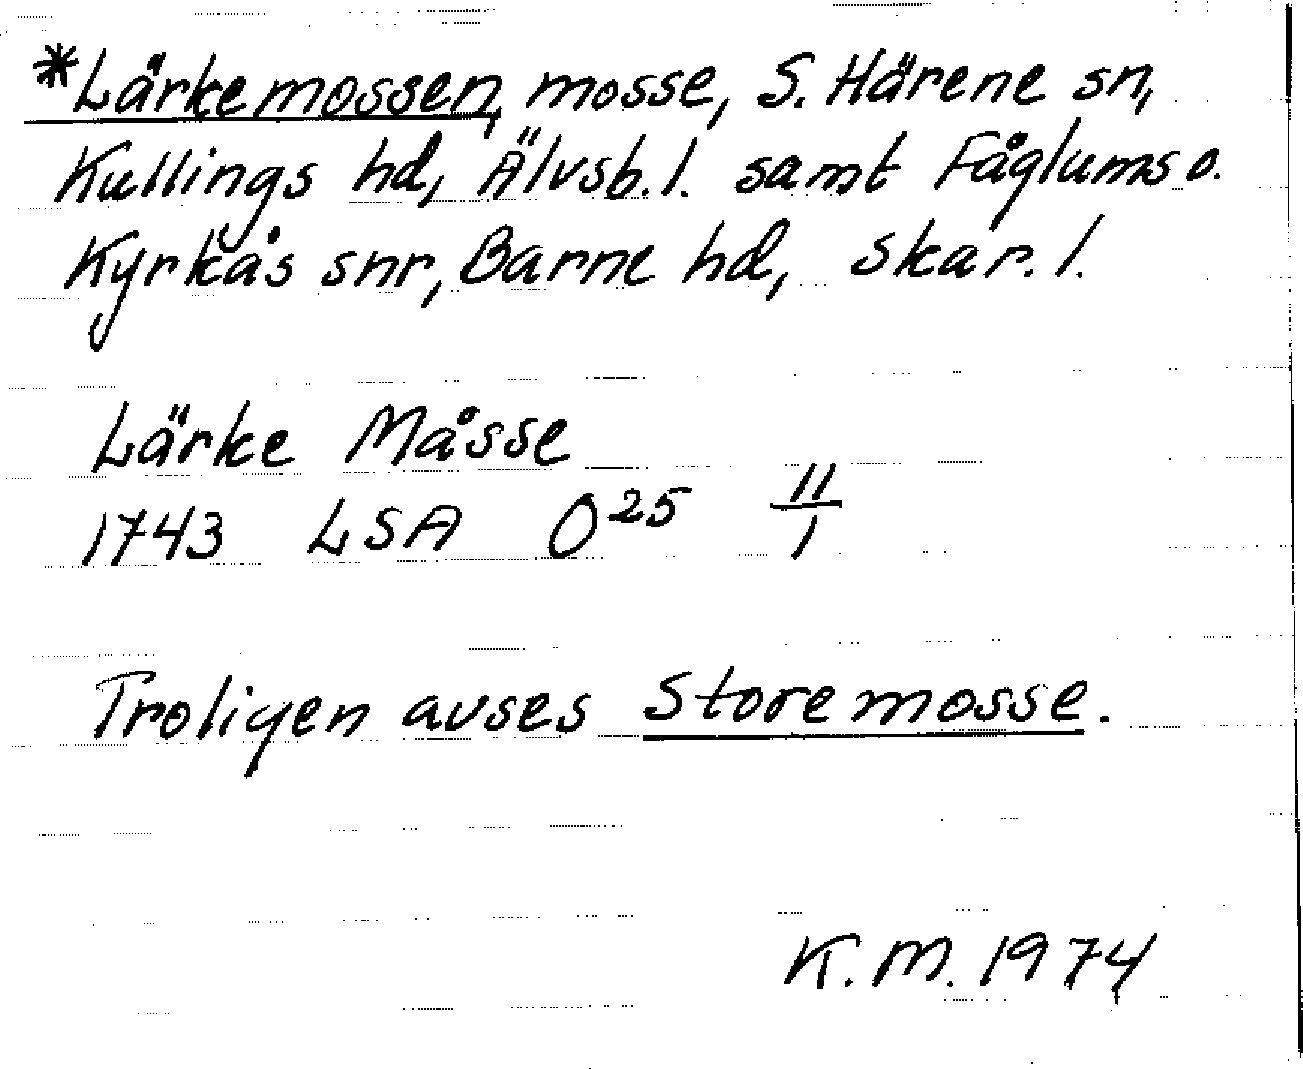 *Lärkemossen, mosse, S. Härene sn,
Kullings hd, Älvsb. l. samt Fåglums o.
Kyrkås snr, Barne hd, Skar. l.
Lärke Måsse
1743 LSA O²⁵ 11/1
Troligen avses Store mosse.
K.M. 1974